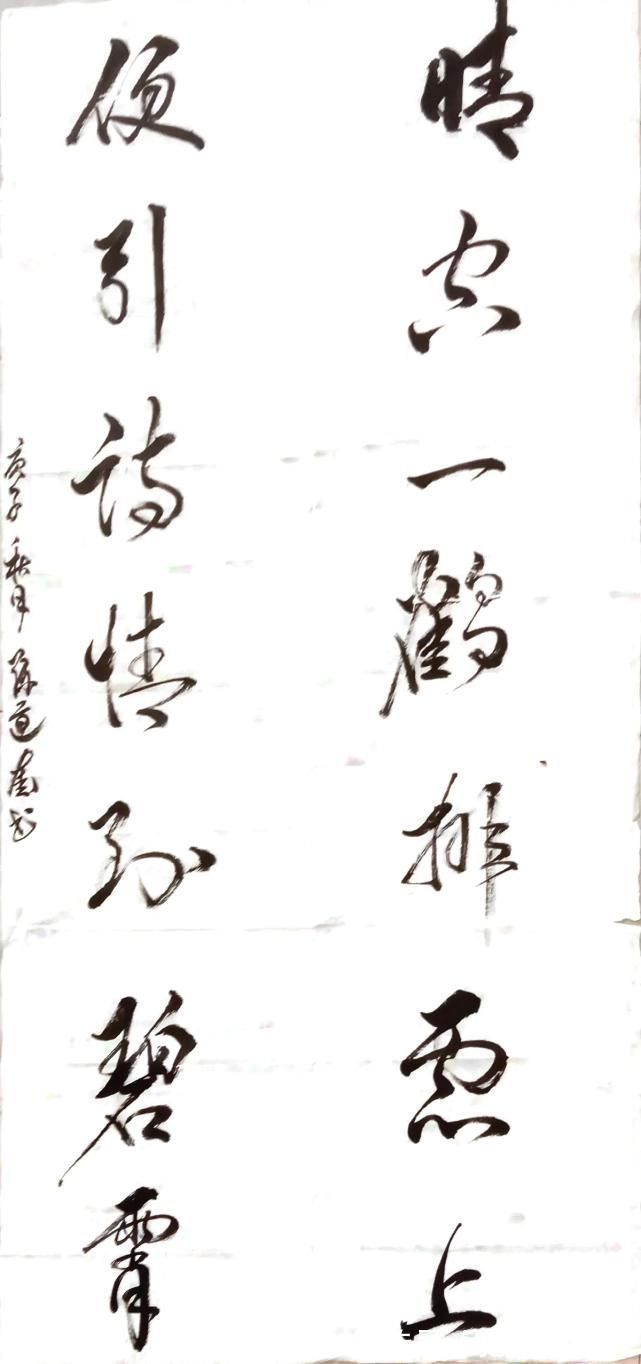 晴空一鹤排雲上
便引詩情到碧霄
庚子秋月 道 书